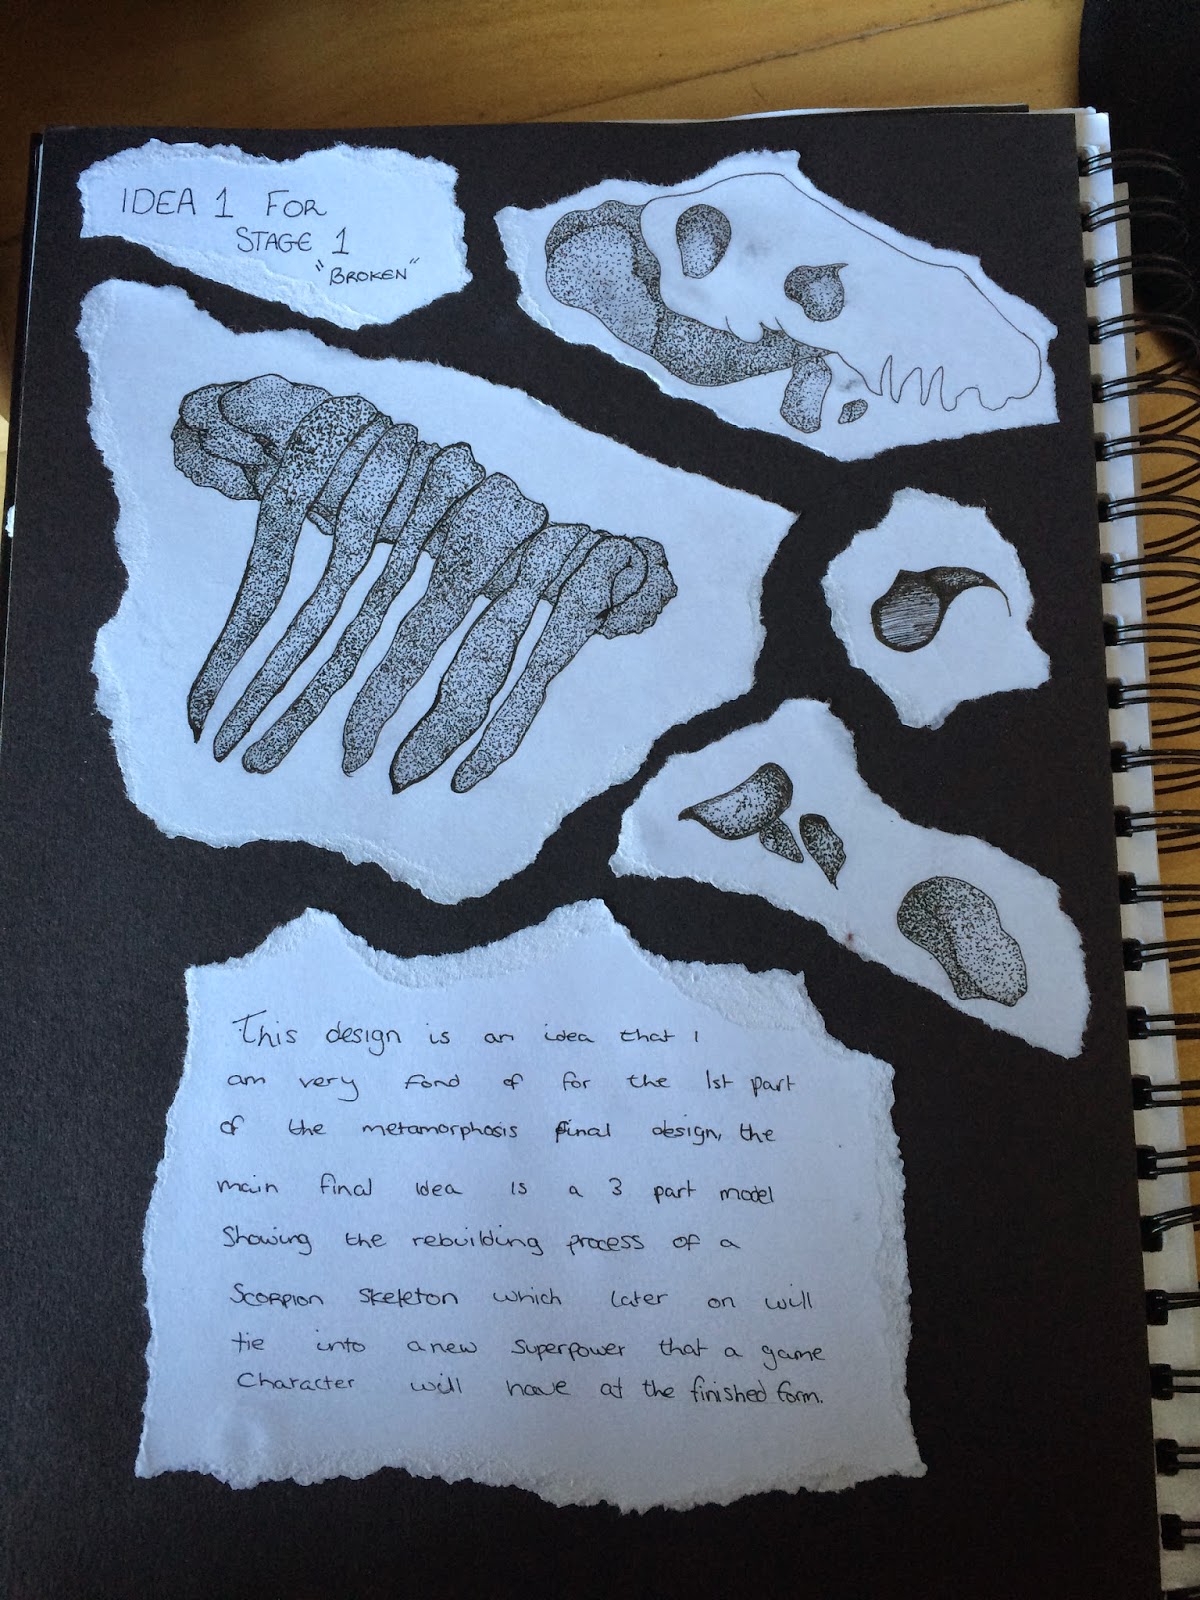 IDEA 1 FOR
STAGE 1
"BROKEN"
This design is an idea that I
am very fond of for the 1st part
of the metamorphosis final design, the
main final idea is a 3 part model
Showing the rebuilding process of a
Scorpion skeleton which later on will
tie into a new superpower that a game
Character will have at the finished form.